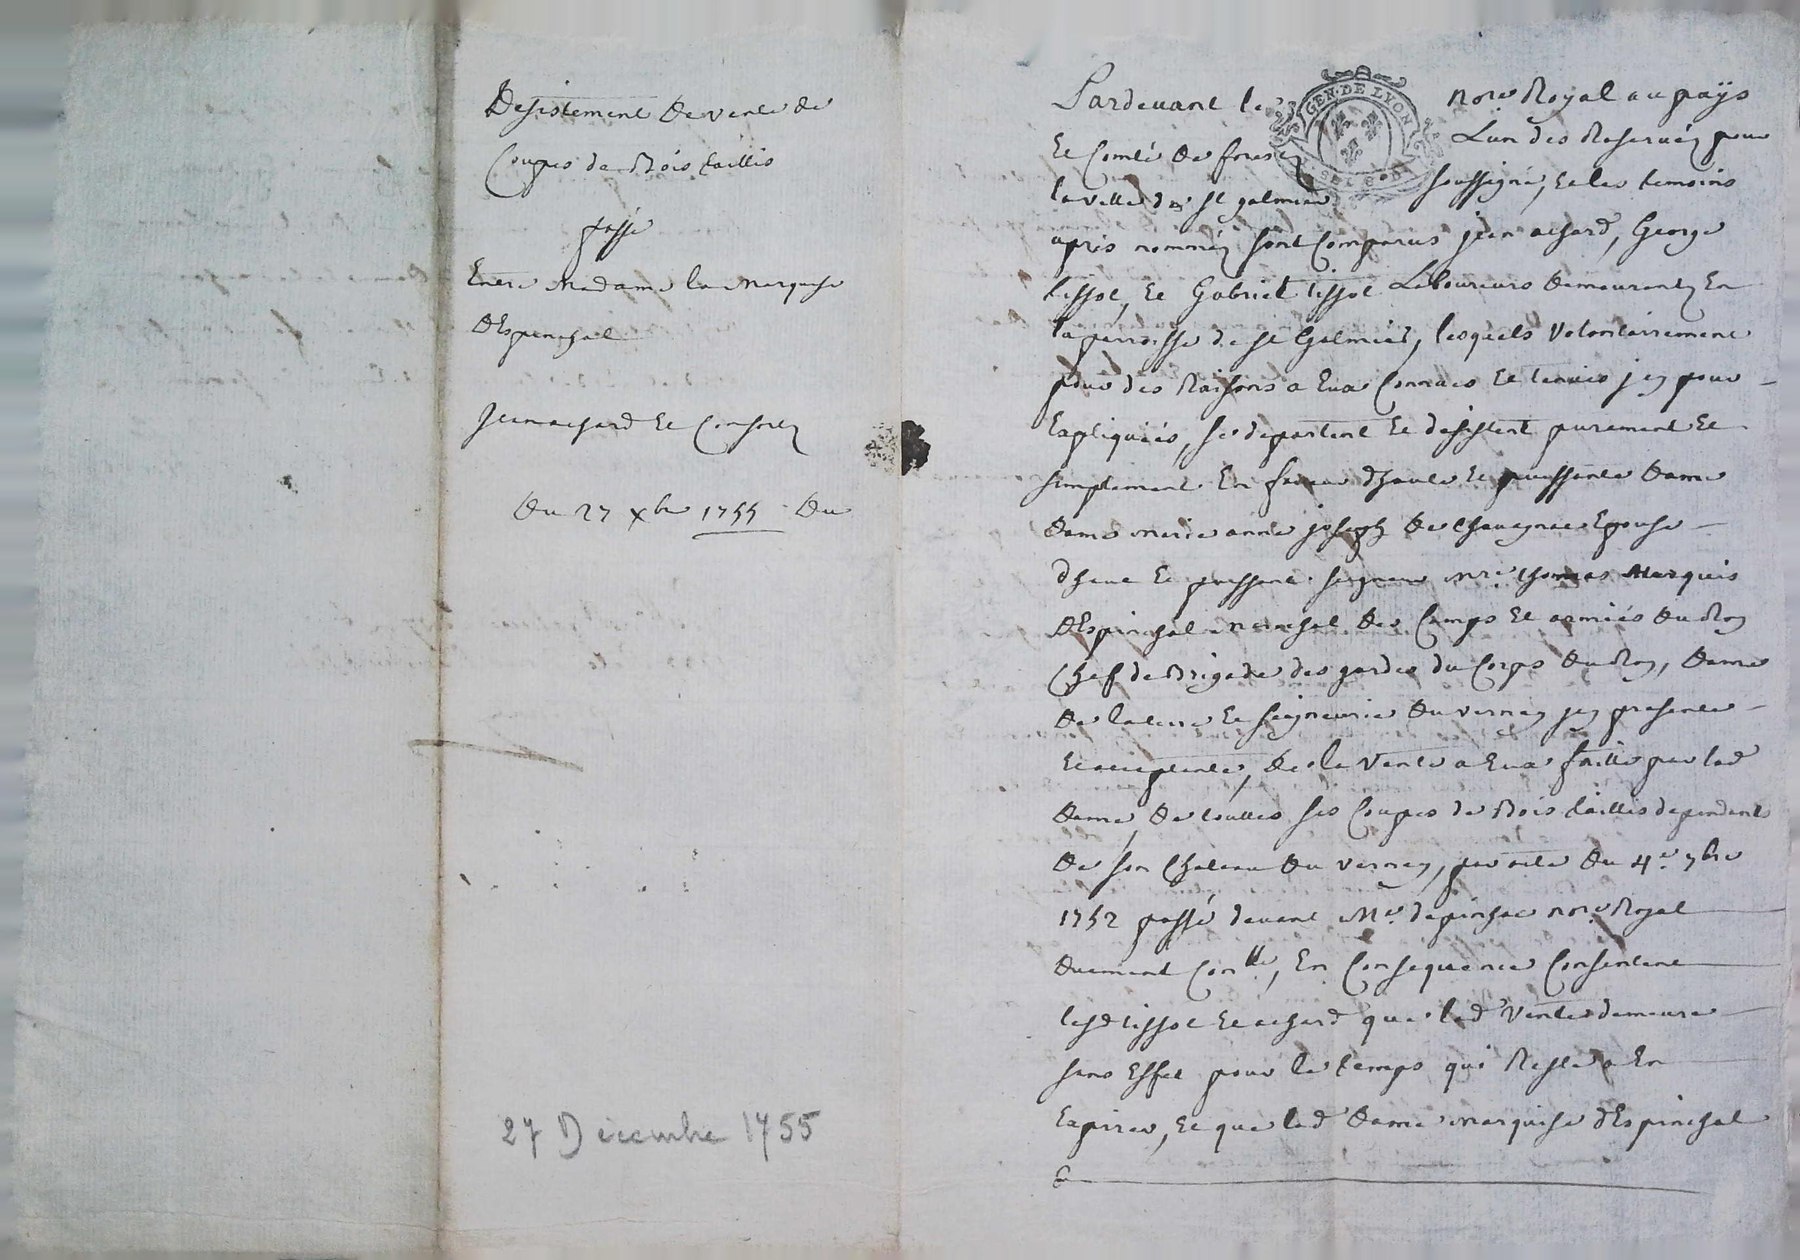 Desistement de vente de
Coupes de Bois taillis
passé
Entre Madame la Marquise
d'Espinchal
Jean achard Et Consorts
Du 27 xbre 1755 Du
27 Décembre 1755
GEN·DE LYON
Pardevant le Nore Royal au païs
Et Comté de forest L'un des Reservés pour
la ville de St galmier soussigné, Et les temoins
après nommés sont Comparus jean achard, George
tissot, Et Gabriel tissot Laboureurs demeurents En
la parroisse de St Galmier, lesquels Volontairement
pour des Raisons a Eux Connues Et tenues jcy pour
Expliquées, se departent Et desistent purement Et
simplement En faveur d'haute Et puissante dame
dame marie anne joseph de Chavagnac Epouse
d'haut Et puissant seigneur mre thomas Marquis
d'Espinchal marechal des Camps Et armées du Roy
Chef de Brigade des gardes du Corps du Roy, dame
de la terre Et seigneurie du vernay jcy presente
Et acceptante, de la Vente a Eux faitte par lad
dame, de touttes ses Coupes de Bois taillis dependents
de son Chateau du vernay, par acte du 4e. 7bre
1752 passé devant Me. depinhac nore Royal
duement Conllé, En Consequence Consentent
lesd tissot Et achard que lad Vente demeure
sans Effet pour le temps qui Reste a En
Expirer, Et que lad dame marquise d'Espinchal